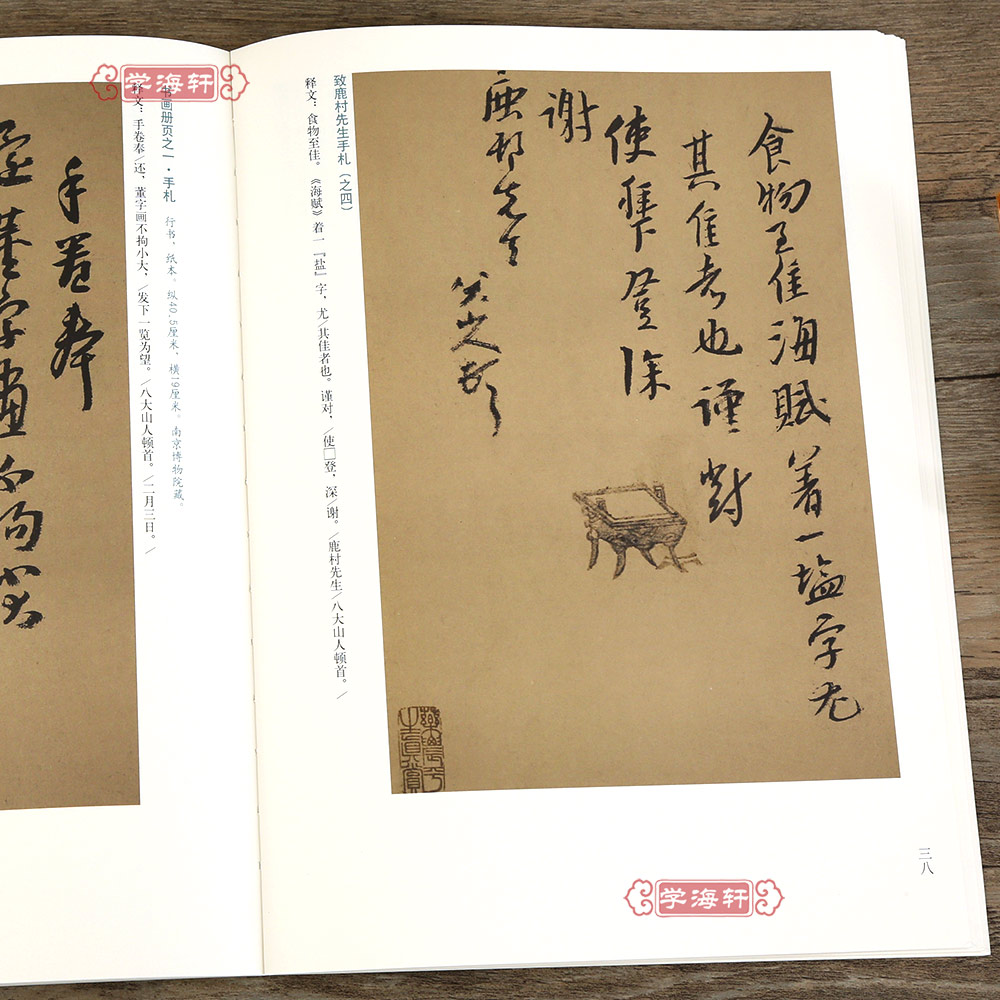 食物至佳海賦着一塩字尤
其佳者也謹對
使
登深
謝
鹿邨先生
八大山人頓首
致鹿村先生手札（之四）
释文：食物至佳。《海赋》着一『盐』字，尤╱其佳者也。谨对，╱使□登，深╱谢。╱鹿村先生╱八大山人顿首。╱
三八
学海轩
学海轩
书画册页之一·手札 行书，纸本。纵40.5厘米，横19厘米。南京博物院藏。
释文：手卷奉╱还，董字画不拘小大，╱发下一览为望。╱八大山人顿首。╱二月三日。╱
手卷奉
還董字畫不拘小大